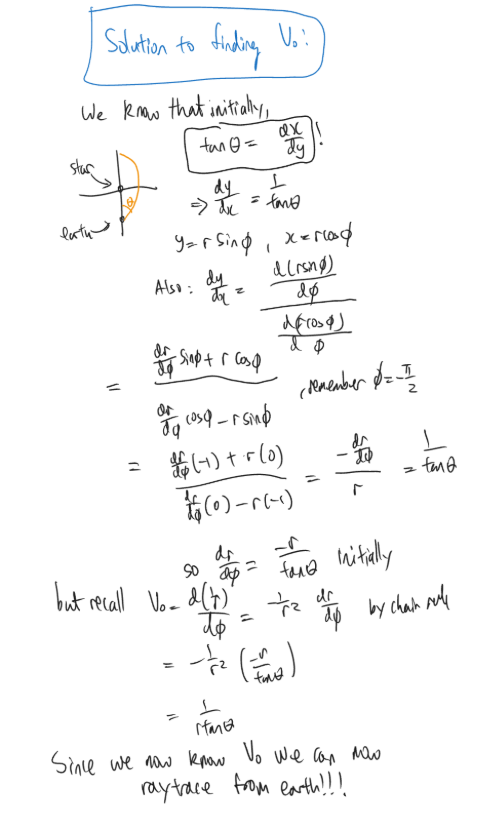 Solution to finding V₀:
We know that initially,
tanθ = dx/dy !
star
⇒ dy/dx = 1/tanθ
θ
earth
y = r sinϕ , x = r cosϕ
Also: dy/dx = (d(r sinϕ)/dϕ) / (d(r cosϕ)/dϕ)
= (dr/dϕ sinϕ + r cosϕ) / (dr/dϕ cosϕ - r sinϕ) , remember ϕ = -π/2
= (dr/dϕ (-1) + r(0)) / (dr/dϕ (0) - r(-1)) = (-dr/dϕ) / r = 1/tanθ
so dr/dϕ = -r/tanθ initially
but recall V₀ = d(1/r)/dϕ = -1/r² dr/dϕ by chain rule
= -1/r² (-r/tanθ)
= 1/(r tanθ)
Since we now know V₀ we can now
raytrace from earth!!!